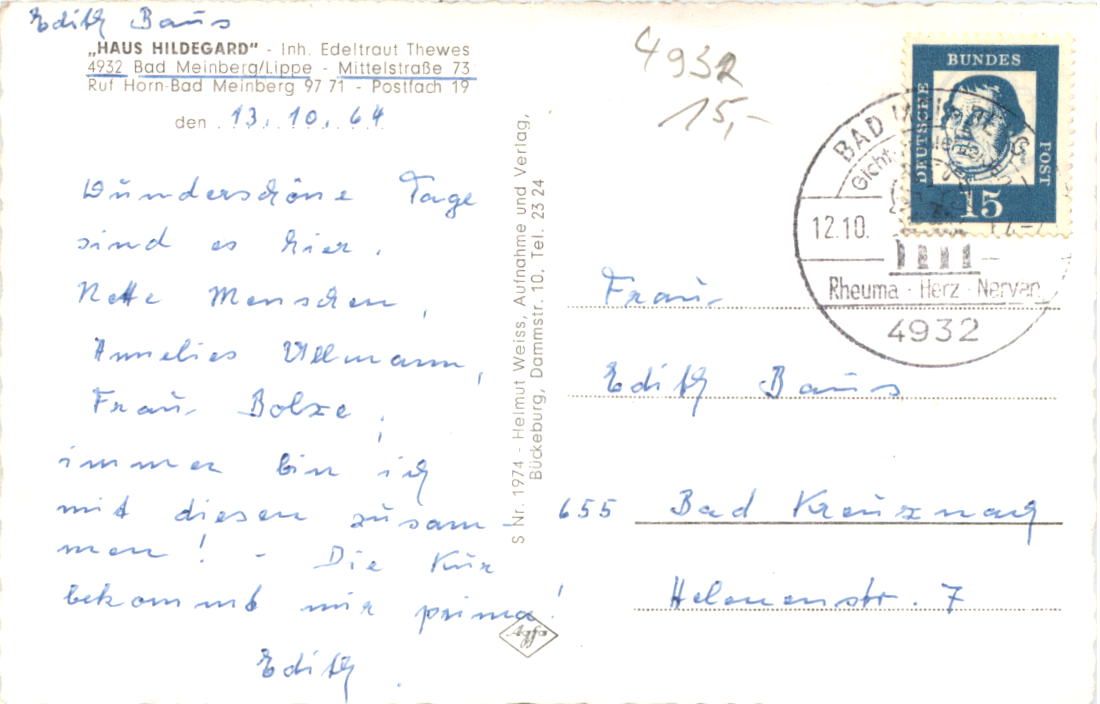 Edith Baus
„HAUS HILDEGARD" - Inh. Edeltraut Thewes
4932 Bad Meinberg/Lippe - Mittelstraße 73
Ruf Horn-Bad Meinberg 97 71 - Postfach 19
den 13.10.64
Wunderschöne Tage
sind es hier.
Nette Menschen,
Annelies Ullmann,
Frau Bolze,
immer bin ich
mit diesen zusam
men! - Die Kur
bekommt mir prima!
Edith.
S Nr. 1974 - Helmut Weiss, Aufnahme und Verlag,
Bückeburg, Dammstr. 10, Tel. 23 24
Agfa
4932
15,-
DEUTSCHE
BUNDES
POST
15
BAD
Gicht
12.10.
Rheuma · Herz · Nerven
4932
Frau
Edith Baus
655 Bad Kreuznach
Helenenstr. 7